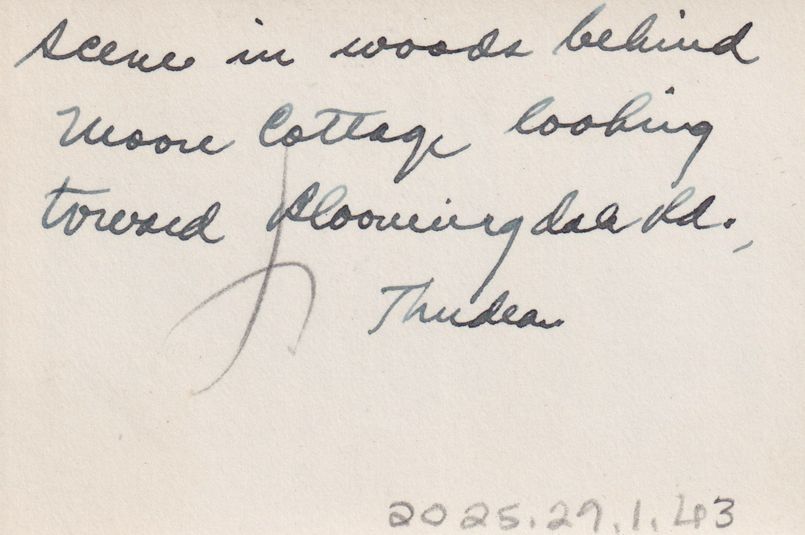 Scene in woods behind
Moore Cottage looking
toward Bloomingdale Rd.,
Thudeau
2025.29.1.43